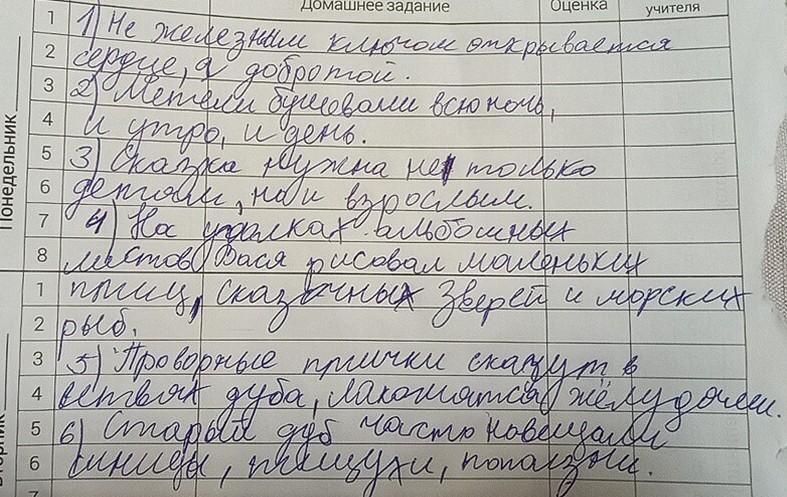 Домашнее задание Оценка учителя
Понедельник
1 1) Не железным ключом открывается
2 сердце, а добротой.
3 2) Метели бушевали всю ночь,
4 и утро, и день.
5 3) Сказка нужна не только
6 детям, но и взрослым.
7 4) На уголках альбомных
8 листов Вася рисовал маленьких
1 птиц, сказочных зверей и морских
2 рыб.
3 5) Проворные птички скачут в
4 ветвях дуба, лакомятся жёлудочем.
5 6) Старый дуб часто навещали
6 синицы, пищухи, поползни.
7